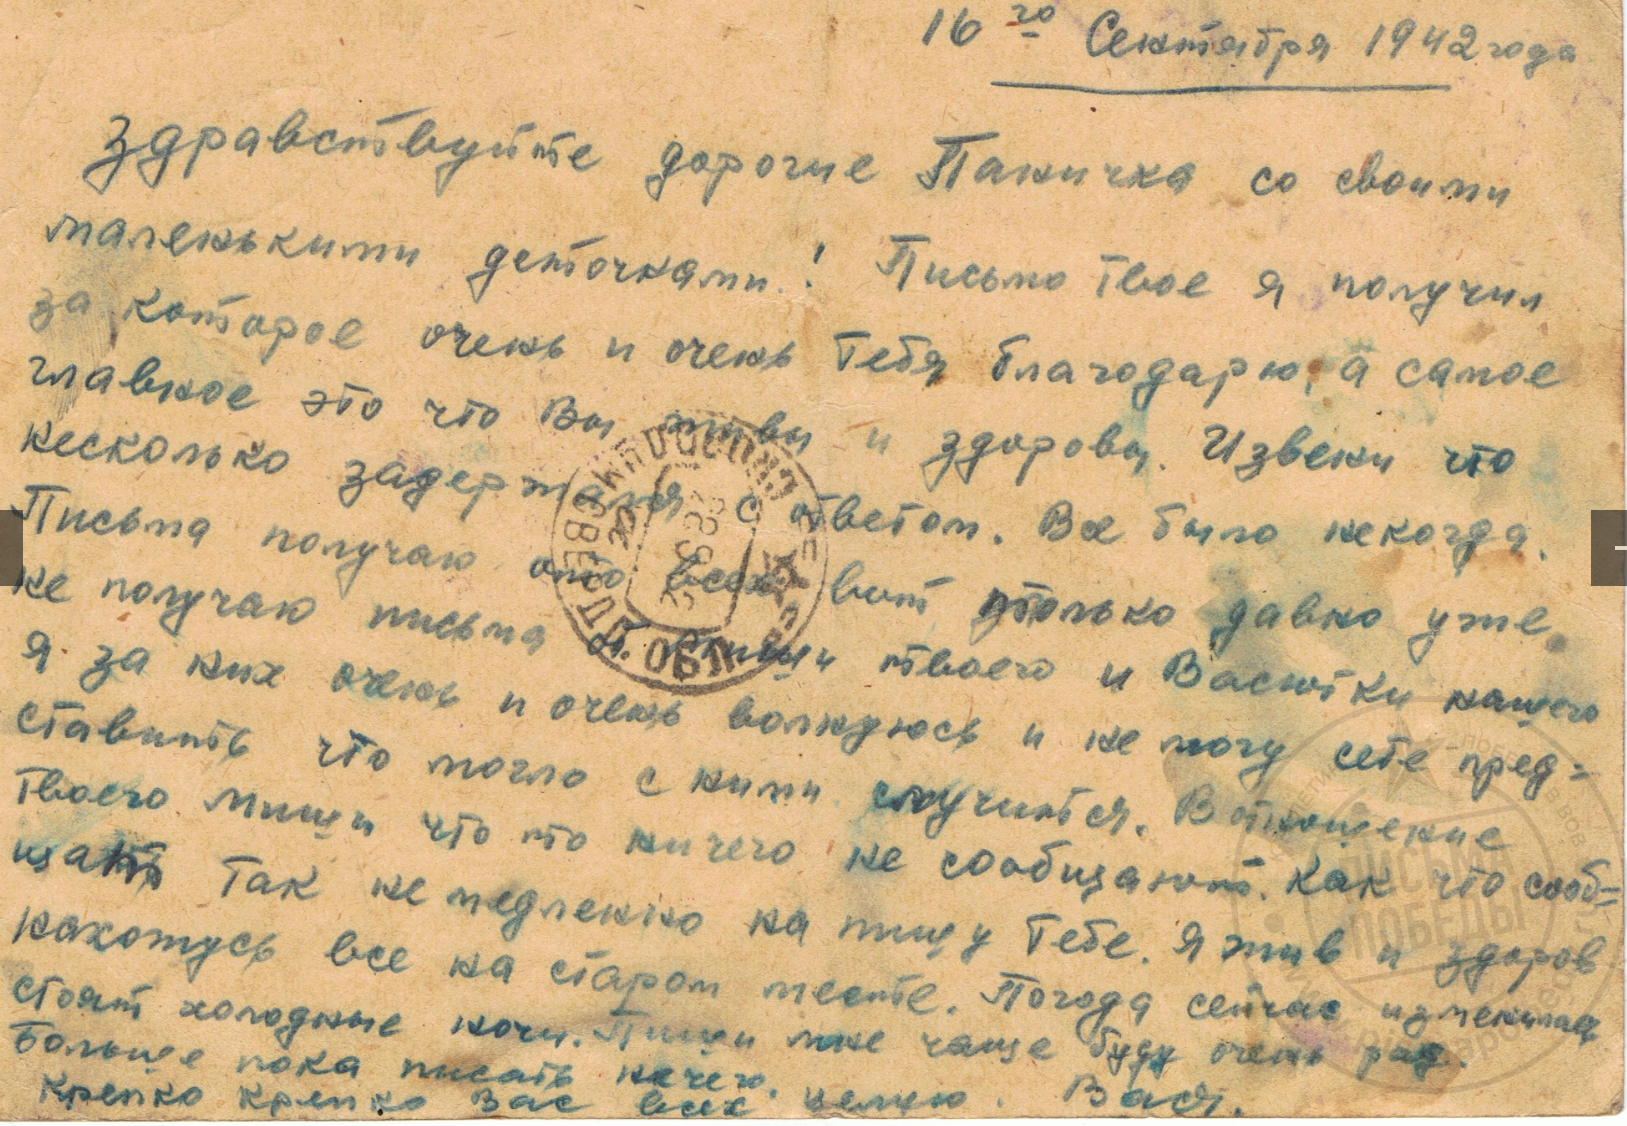 16го Сентября 1942 года
Здравствуйте дорогие Паничка со своими
маленькими деточками! Письмо твое я получил
за которое очень и очень тебя благодарю, а самое
главное это что Вы живы и здоровы. Извени что
несколько задержался с ответом. Все было некогда.
Письма получаю ото всех вот только давно уже
не получаю письма от Миши твоего и Васютки нашего
Я за них очень и очень волнуюсь и не могу себе пред=
ставить что могло с ними случится. В отношение
твоего миши что то ничего не сообщают. Как что сооб=
щат так не медленно на пишу тебе. Я жив и здоров
нахожусь все на старом месте. Погода сейчас изменилась
стоят холодные ночи. Пиши мне чаще буду очень рад.
Больше пока писать нечего.
Крепко крепко Вас всех целую. Вася.
ПИСЬМА
ПОБЕДЫ